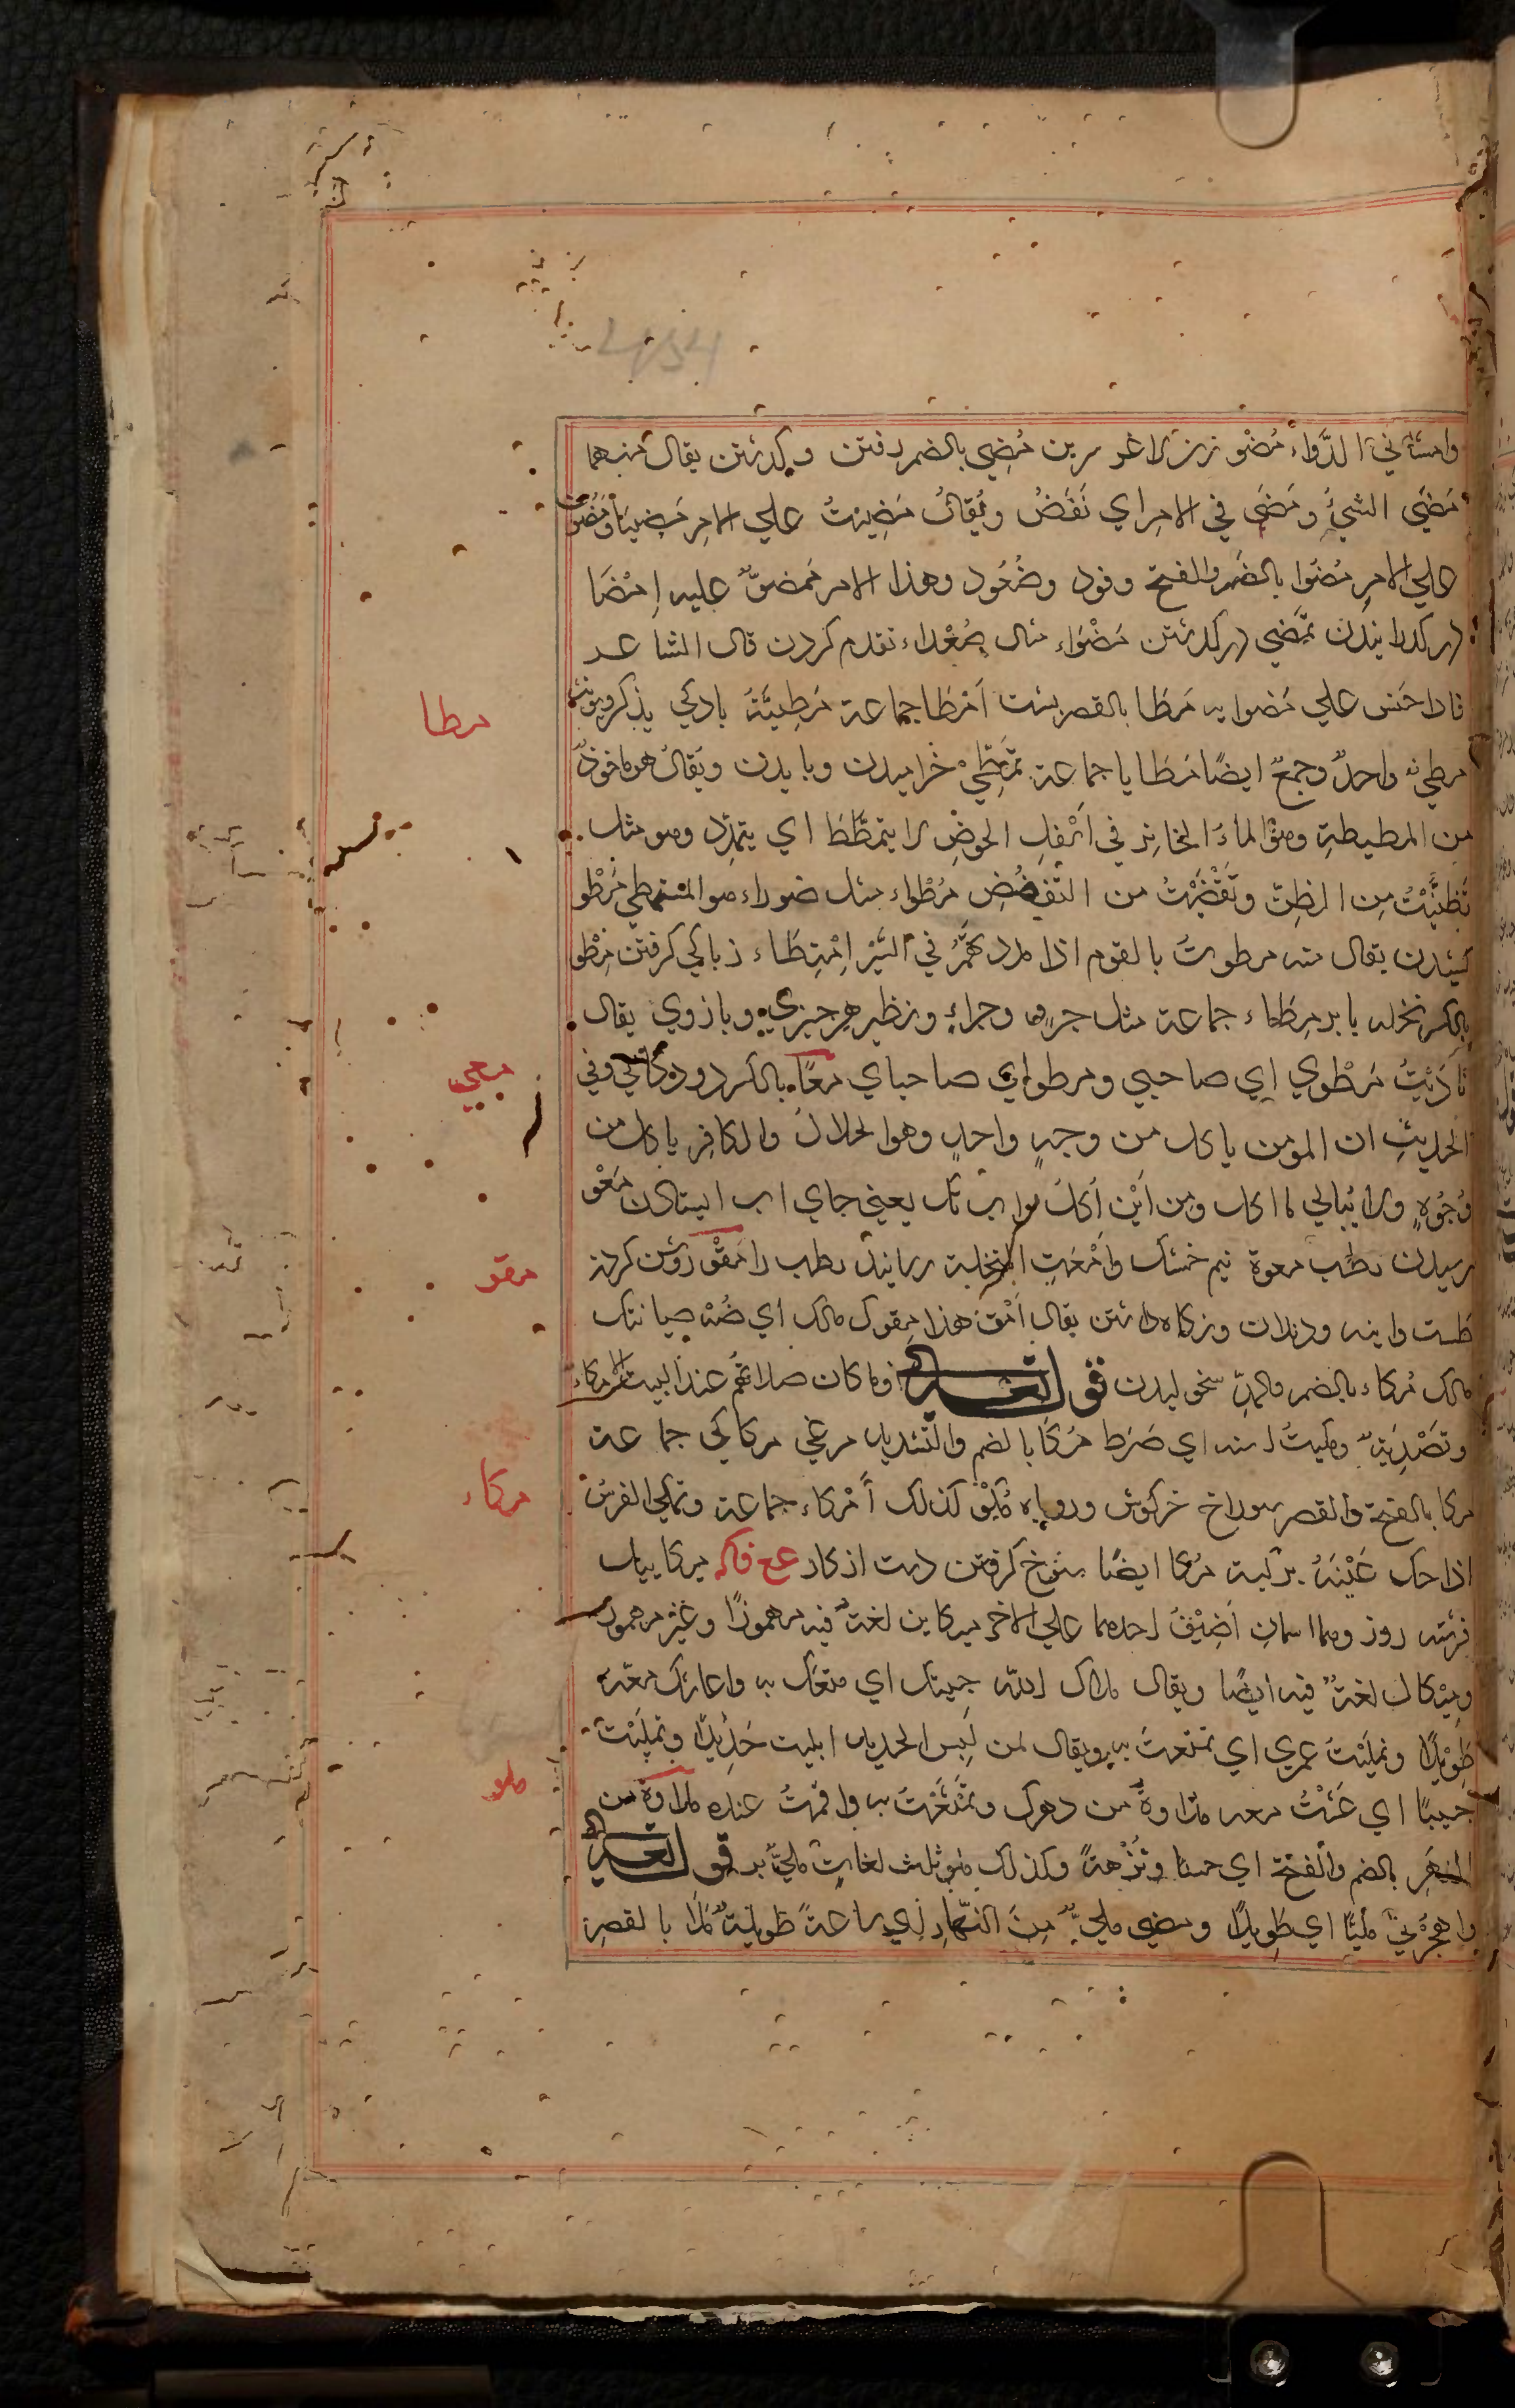 وامشاني الدَّواء مضو زيز لاغر سرين مُضِي بالضم رفتن وكدشتن يقال منهما
مَضَى الشيُ ومَضَى في الامر اي نَفَضُ ويُقالُ مَضِيتُ علي الامر مَضِيّاً ومَضُوت
علي الامر مُضَوا بالضم والفتح وفود وصُعُود وهذا الامر مَمضوٌّ عليه اِمْضَا
در كدرانيدن تمَضِّي دركدشتن مُضَوَاء مثال صُعَداء تقدم كردن قال الشاعر
فاذا خنس علي مُضوايه مَطَا بالقصر پشت اَمْطَا جماعة مَطِيَّةُ باركي يذكر ويونث
مطي واحدٌ وجمعٌ ايضًا مَطَايا جماعة تمَطِّي خراميدن ويا يدن ويُقالُ هو ماخوذٌ
من المطيطةِ وهو الماءُ الخاثِر في اَسْفلِ الحوضِ لا يتمطَّطَ اي يتمدِّد وهو مثل
تَظنَّيْتُ مِن الظِنّ وتَقَضَّيْتُ من التَّقضُّضِ مُطْوَاء مثل صعداء هو التمطي مَطْو
كشيدن يقال منه مطوتُ بالقوم اذا مدد بهم في السَّيْر اِمْتِطَاء زباركي كرفتن مِطْو
بالكسر نخله يا بر مِطَاء جماعة مثل جروٍ وجراءٍ ونظير هر چيزي وبازوي يقال
نَاديْتُ مَطْوِي اي صاحبي ومطواي صاحباي مِعًا بالكسر رودكاني وفي
الحديثِ ان المومن ياكل من وجهٍ واحدٍ وهو الحلال والكافِر ياكل من
وُجُوهٍ ولا يُبالي ما اكل ومن اَيْن اَكلَ مواب تاك يعني جاي اب ايستادن مَعْو
رسيدن رطب معوة نيم خشك واَمْعَتِ النخلة رسانيد رطب را مَقْو روشن كردن
طست واينه ودندان ونكاه داشتن يقال اُمْقُ هذا مِقوك مالك اي صُنْه صيانتك
مالك مُكاء بالضم والمدّ سخوليدن قوله تعالي وما كان صلاتُهُم عند البيت الا مكاء
وتَصْدِيَةً ومكيتُ استه اي ضَرَط مُكَّا بالضم والتَّشديد مرغي مكاكي جماعة
مكا بالفتح والقصر سوراخ خركوش وروباه مُكْو كذلك اَمْكاء جماعة وتمكي الفرسُ
اذا حك عَيْنَهُ بركبته مُكا ايضًا شوخ كرفتن دست از كار مع فاكه ميكاييل
فرشته روزي وهما اسمانِ اُضِيْفَ احدهما علي الاخر ميكاين لغةٌ فيه مهموزًا وغير مهموز
وميكال لغةٌ فيه ايضًا ويقال ملاك الله حبيبك اي متعك به واعاشك معه
طِوِيْلًا وتمليْتُ عمري اي تمتّعتُ به ويقال لمن لبِس الجديد ابليت جَدِيْدًا وتمليْتَ
حبيبًا اي عَشْتُ معه ملاوةً من دهرك وتمَتَّعْتُ به واقمْتُ عنده ملاوةً من
الدهرِ بالضم والفتح اي حينًا وبُرْهةً وكذلك ملو ثلث لغات ملي قوله تعالي
واهجُرْني مَليًّا اي طِويلًا ومضي مليٌّ مِنَ النَّهارِ اي ساعةً طويلةً مَلَا بالقصر
مطا
معي
مقو
مكاء
ملو